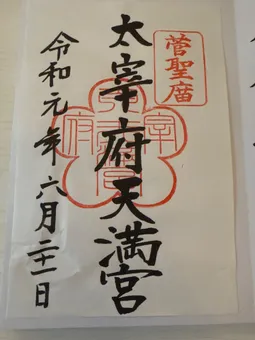 菅聖廟
太宰府天満宮
令和元年六月二十一日